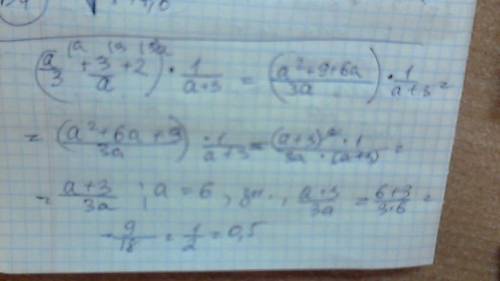 (a/3 + 3/a + 2) · 1/(a+3) = (a²+9+6a)/3a · 1/(a+3) =
= (a²+6a+9)/3a · 1/(a+3) = (a+3)²·1/3a·(a+3) =
= (a+3)/3a ; a = 6, (a+3)/3a = (6+3)/3·6 =
= 9/18 = 1/2 = 0,5